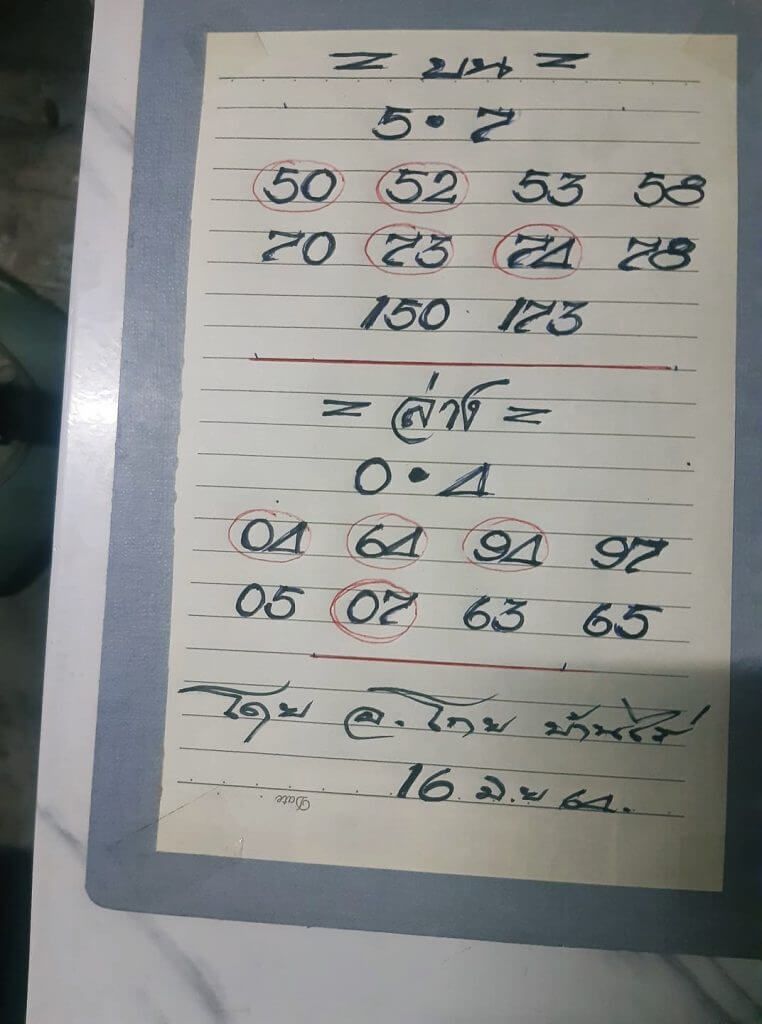 = บน =
5 • 7
50 52 53 58
70 73 74 78
150 173
= ล่าง =
0 • 4
04 64 94 97
05 07 63 65
โดย อ. โทย บ้านไร่
16 มิ.ย 64.
Date